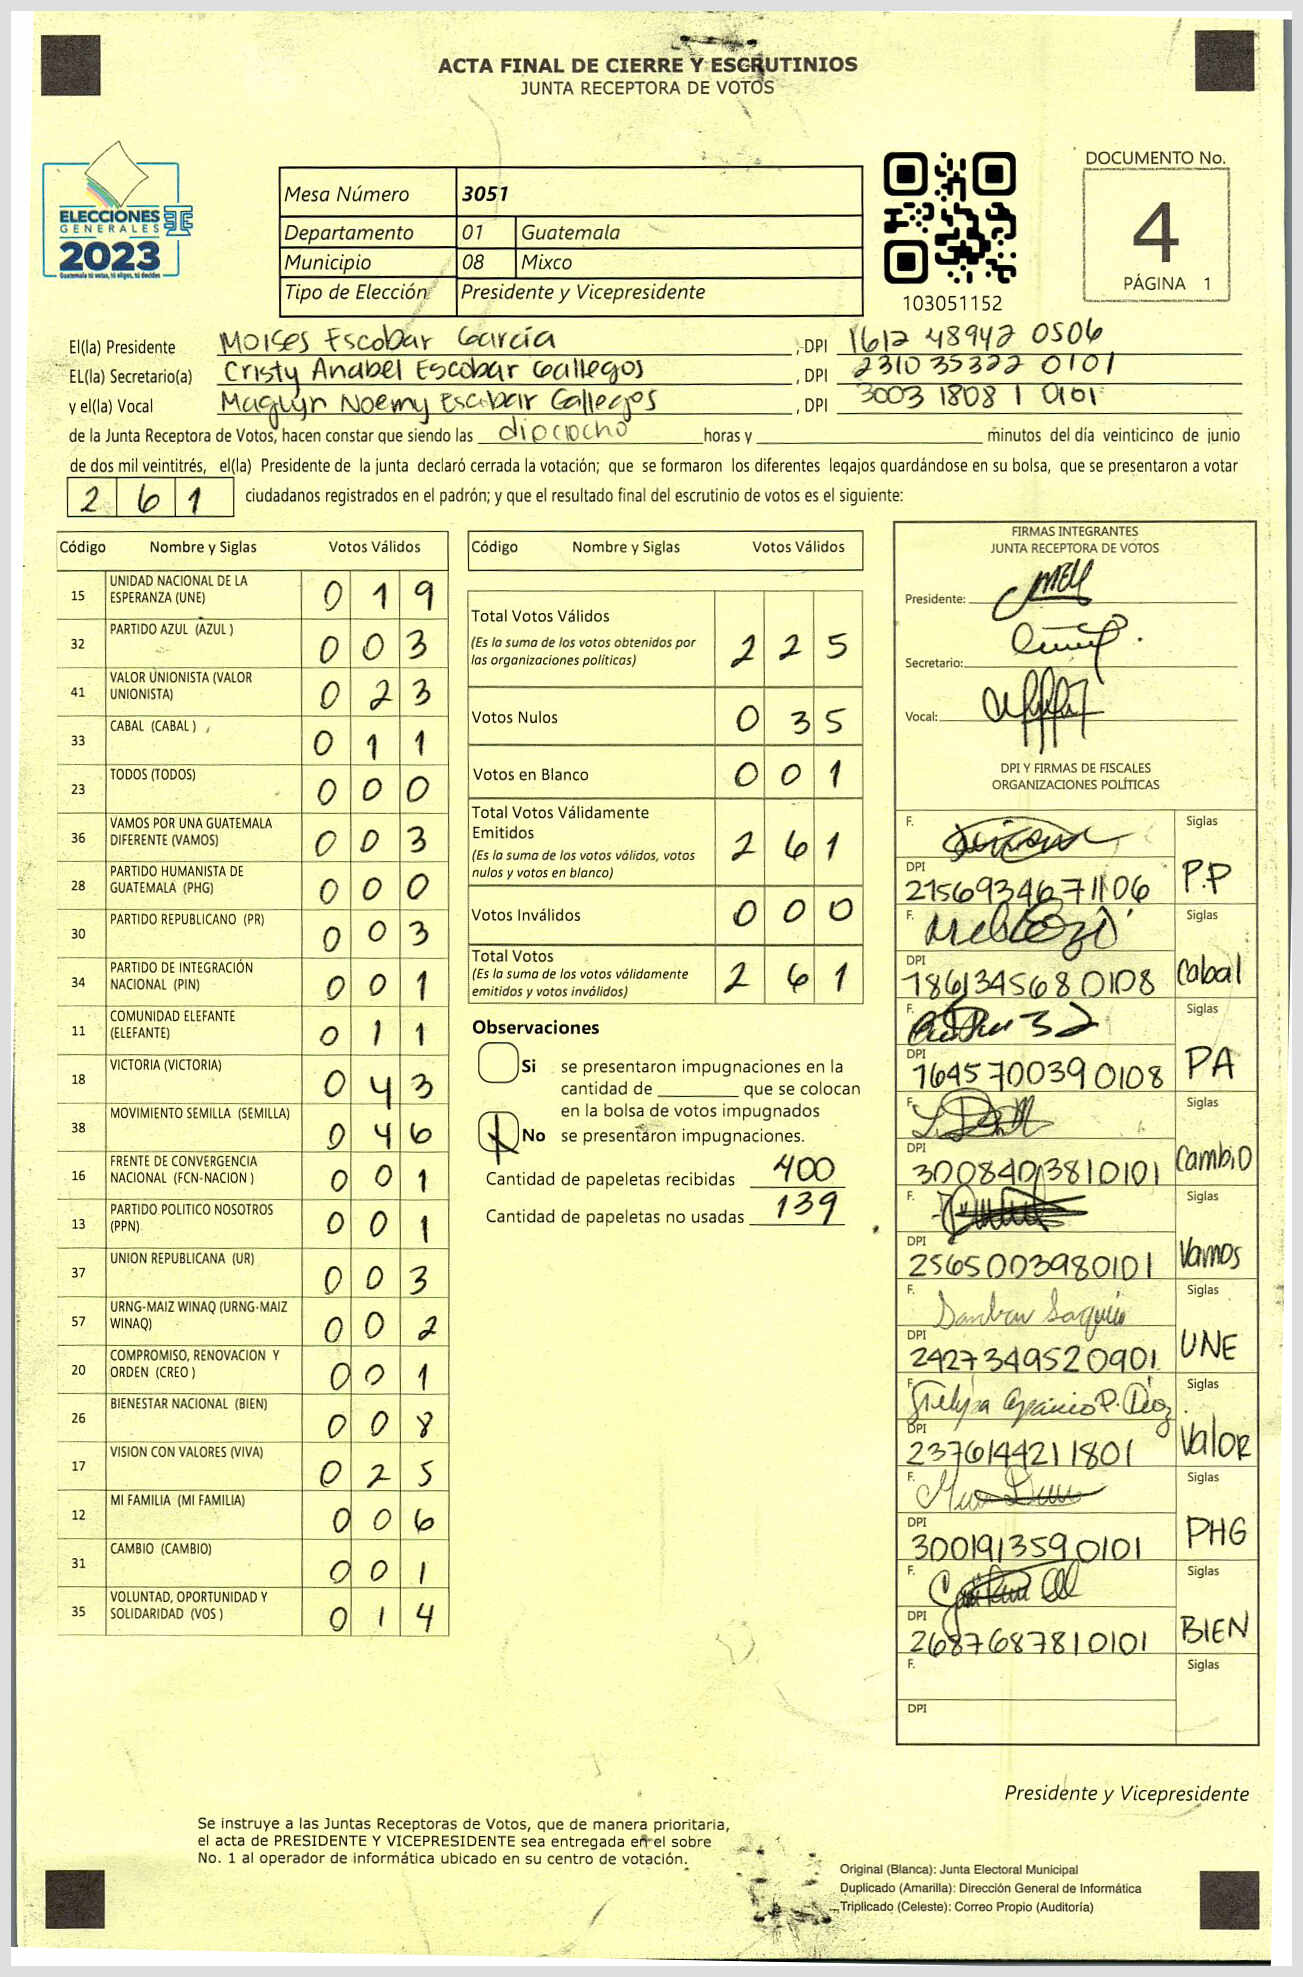 ACTA FINAL DE CIERRE Y ESCRUTINIOS
JUNTA RECEPTORA DE VOTOS
ELECCIONES
GENERALES
2023
Guatemala tú votas, tú eliges, tú decides
Mesa Número 3051
Departamento 01 Guatemala
Municipio 08 Mixco
Tipo de Elección Presidente y Vicepresidente
103051152
DOCUMENTO No.
4
PÁGINA 1
El(la) Presidente Moises Escobar García , DPI 1612 48942 0506
EL(la) Secretario(a) Cristy Anabel Escobar Gallegos , DPI 2310 35322 0101
y el(la) Vocal Maglyn Noemy Escobar Gallegos , DPI 3003 18081 0101
de la Junta Receptora de Votos, hacen constar que siendo las dieciocho horas y minutos del día veinticinco de junio
de dos mil veintitrés, el(la) Presidente de la junta declaró cerrada la votación; que se formaron los diferentes legajos guardándose en su bolsa, que se presentaron a votar
2 6 1 ciudadanos registrados en el padrón; y que el resultado final del escrutinio de votos es el siguiente:
Código Nombre y Siglas Votos Válidos
15 UNIDAD NACIONAL DE LA ESPERANZA (UNE) 0 1 9
32 PARTIDO AZUL (AZUL ) 0 0 3
41 VALOR UNIONISTA (VALOR UNIONISTA) 0 2 3
33 CABAL (CABAL ) 0 1 1
23 TODOS (TODOS) 0 0 0
36 VAMOS POR UNA GUATEMALA DIFERENTE (VAMOS) 0 0 3
28 PARTIDO HUMANISTA DE GUATEMALA (PHG) 0 0 0
30 PARTIDO REPUBLICANO (PR) 0 0 3
34 PARTIDO DE INTEGRACIÓN NACIONAL (PIN) 0 0 1
11 COMUNIDAD ELEFANTE (ELEFANTE) 0 1 1
18 VICTORIA (VICTORIA) 0 4 3
38 MOVIMIENTO SEMILLA (SEMILLA) 0 4 6
16 FRENTE DE CONVERGENCIA NACIONAL (FCN-NACION ) 0 0 1
13 PARTIDO POLITICO NOSOTROS (PPN) 0 0 1
37 UNION REPUBLICANA (UR) 0 0 3
57 URNG-MAIZ WINAQ (URNG-MAIZ WINAQ) 0 0 2
20 COMPROMISO, RENOVACION Y ORDEN (CREO ) 0 0 1
26 BIENESTAR NACIONAL (BIEN) 0 0 8
17 VISION CON VALORES (VIVA) 0 2 5
12 MI FAMILIA (MI FAMILIA) 0 0 6
31 CAMBIO (CAMBIO) 0 0 1
35 VOLUNTAD, OPORTUNIDAD Y SOLIDARIDAD (VOS ) 0 1 4
Código Nombre y Siglas Votos Válidos
Total Votos Válidos
(Es la suma de los votos obtenidos por
las organizaciones políticas) 2 2 5
Votos Nulos 0 3 5
Votos en Blanco 0 0 1
Total Votos Válidamente
Emitidos 2 6 1
(Es la suma de los votos válidos, votos
nulos y votos en blanco)
Votos Inválidos 0 0 0
Total Votos
(Es la suma de los votos válidamente
emitidos y votos inválidos) 2 6 1
Observaciones
Si se presentaron impugnaciones en la
cantidad de ________ que se colocan
en la bolsa de votos impugnados
No se presentaron impugnaciones.
Cantidad de papeletas recibidas 400
Cantidad de papeletas no usadas 139
FIRMAS INTEGRANTES
JUNTA RECEPTORA DE VOTOS
Presidente:
Secretario:
Vocal:
DPI Y FIRMAS DE FISCALES
ORGANIZACIONES POLÍTICAS
F. Siglas
DPI 2156934671106 P.P
F. Siglas
DPI 1861345680108 Cabal
F. Siglas
DPI 1645700390108 PA
F. Siglas
DPI 30084013810101 Cambio
F.
DPI 2565003980101 Vamos
F. Siglas
DPI 2427349520901 UNE
F. Siglas
DPI 2376144211801 Valor
F. Siglas
DPI 3001913590101 PHG
F. Siglas
DPI 2687687810101 BIEN
F. Siglas
DPI
Presidente y Vicepresidente
Se instruye a las Juntas Receptoras de Votos, que de manera prioritaria,
el acta de PRESIDENTE Y VICEPRESIDENTE sea entregada en el sobre
No. 1 al operador de informática ubicado en su centro de votación.
Original (Blanca): Junta Electoral Municipal
Duplicado (Amarilla): Dirección General de Informática
Triplicado (Celeste): Correo Propio (Auditoría)